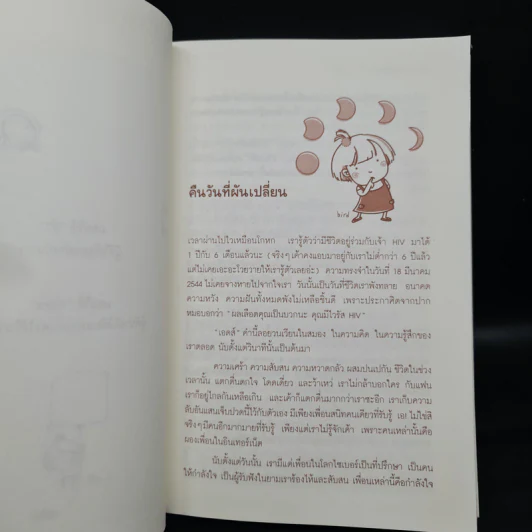 คืนวันที่ผันเปลี่ยน
เวลาผ่านไปไวเหมือนโกหก เรารู้ตัวว่ามีชีวิตอยู่ร่วมกับเจ้า HIV มาได้
1 ปีกับ 6 เดือนแล้วนะ (จริงๆ เค้าคงแอบมาอยู่กับเราไม่ต่ำกว่า 6 ปีแล้ว
แต่ไม่เคยเอะอะโวยวายให้เรารู้ตัวเลยอ่ะ) ความทรงจำในวันที่ 18 มีนาคม
2544 ไม่เคยจางหายไปจากใจเรา วันนั้นเป็นวันที่ชีวิตเราพังทลาย อนาคต
ความหวัง ความฝันทั้งหมดพังไม่เหลือชิ้นดี เพราะประกาศิตจากปาก
หมอบอกว่า "ผลเลือดคุณเป็นบวกนะ คุณมีไวรัส HIV"
"เอดส์" คำนี้ลอยวนเวียนในสมอง ในความคิด ในความรู้สึกของ
เราตลอด นับตั้งแต่วินาทีนั้นเป็นต้นมา
ความเศร้า ความสับสน ความหวาดกลัว ผสมปนเปกัน ชีวิตในช่วง
เวลานั้น แตกตื่นตกใจ โดดเดี่ยว และว้าเหว่ เราไม่กล้าบอกใคร กับแฟน
เราก็อยู่ไกลกันเหลือเกิน และเค้าก็แตกตื่นมากกว่าเราซะอีก เราเก็บความ
ลับอันแสนเจ็บปวดนี้ไว้กับตัวเอง มีเพียงเพื่อนสนิทคนเดียวที่รับรู้ เอ! ไม่ใช่สิ
จริงๆ มีคนอีกมากมายที่รับรู้ เพียงแต่เราไม่รู้จักเค้า เพราะคนเหล่านั้นคือ
ผองเพื่อนในอินเทอร์เน็ต
นับตั้งแต่วันนั้น เรามีแต่เพื่อนในโลกไซเบอร์เป็นที่ปรึกษา เป็นคน
ให้กำลังใจ เป็นผู้รับฟังในยามเราร้องไห้และสับสน เพื่อนเหล่านี้คือกำลังใจ